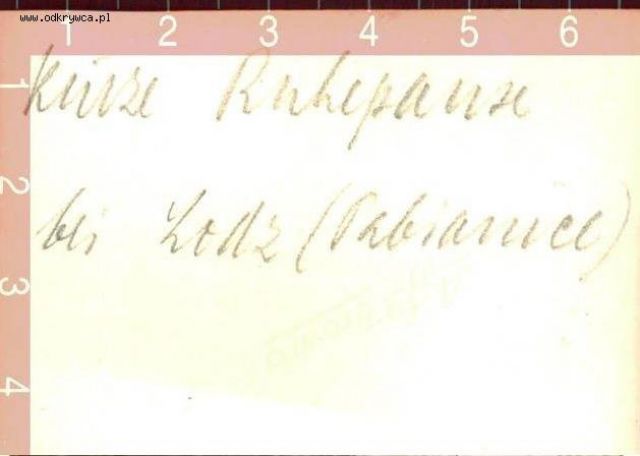 www.odkrywca.pl
1 2 3 4 5 6
1
2
3
4
Kurze Ruhepause
bei Lodz (Pabianice)